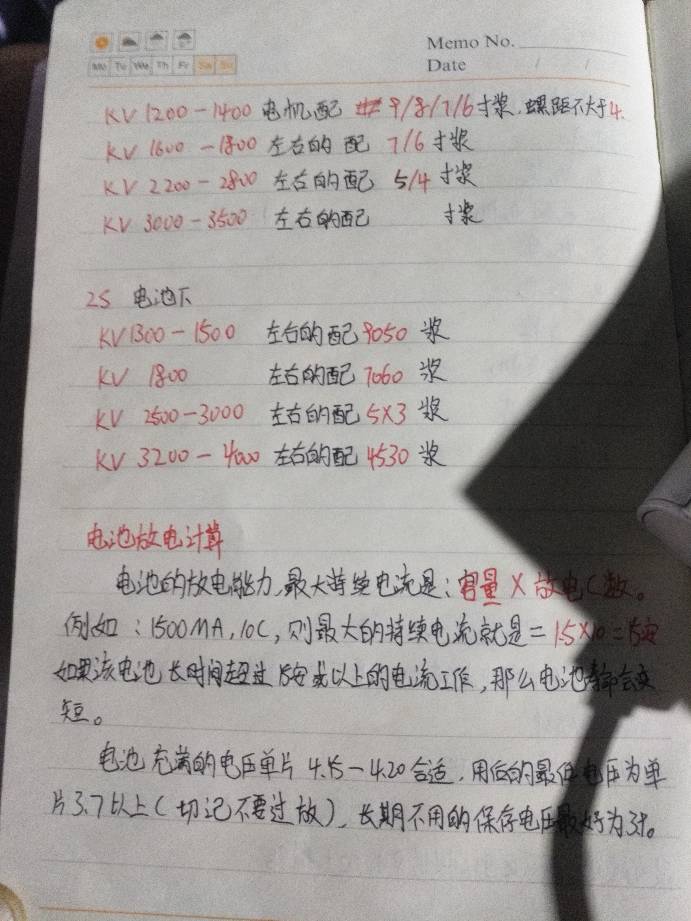 Memo No.
Date / /
Mo Tu We Th Fr Sa Su
KV 1200-1400 电机配 9/8/7/6寸浆.螺距不大于4.
KV 1600-1800 左右的 配 7/6 寸浆
KV 2200-2800 左右的配 5/4 寸浆
KV 3000-3500 左右的配 寸浆
2S 电池下
KV1300-1500 左右的配9050 浆
KV 1800 左右的配7060 浆
KV 2500-3000 左右的配5X3 浆
KV 3200-4000 左右的配 4530 浆
电池放电计算
电池的放电能力,最大持续电流是:容量X放电C数。
例如:1500MA,10C,则最大的持续电流就是=1.5X10=15安
如果该电池长时间超过15安或以上的电流工作,那么电池寿命会变
短。
电池充满的电压单片4.15-4.20合适,用后的最低电压为单
片3.7以上(切记不要过放),长期不用的保存电压最好为3.9。